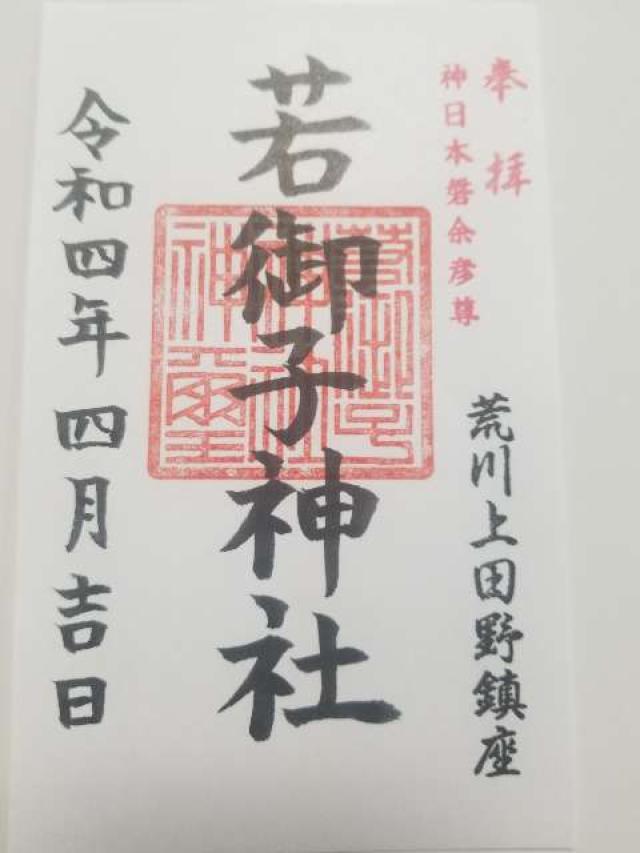 奉拝
神日本磐余彦尊
荒川上田野鎮座
若御子神社
令和四年四月吉日